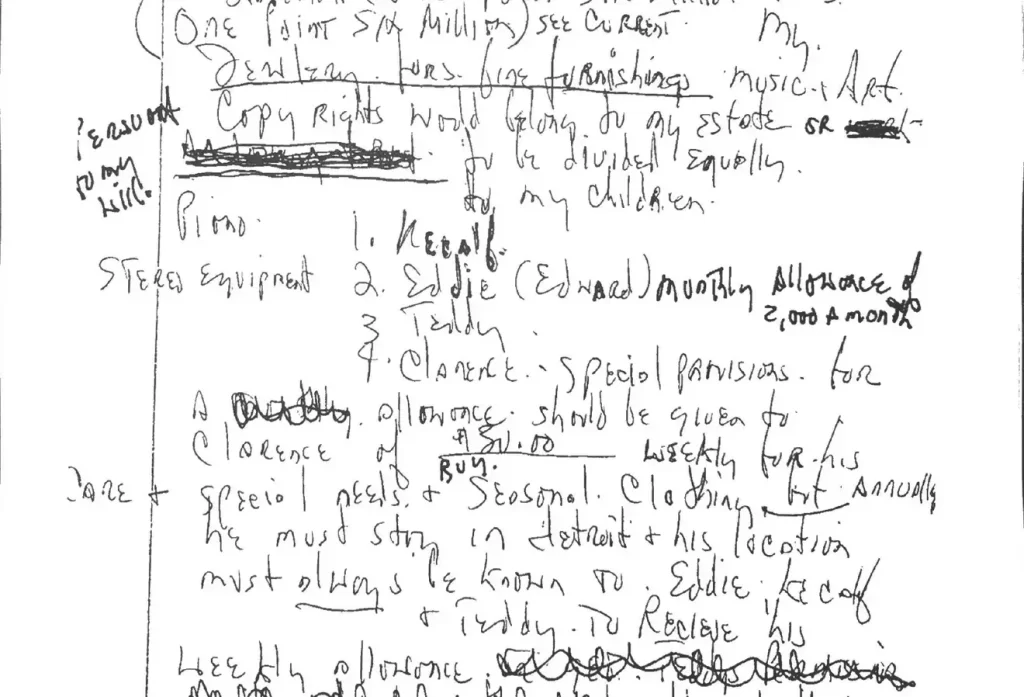 (One Point Six Million) see current My.
Jewlery. furs. fine furnishings music & Art.
Copy Rights would belong to my estate or
to be divided Equally.
to my children.
Persuant
to my
will.
Piano. 1. Kecalf.
Stereo Equipment 2. Eddie (Edward) monthly Allowance of
2,000 A month
3 Teddy.
4. Clarence. - Special provisions. for
A allowance. should be given to
Clarence of $50.00 weekly for his
Buy.
Care + special needs. + Seasonal. Clothing. Annually
he must stay in detroit + his location
must always be known to. Eddie. Kecalf
+ Teddy. To Recieve his
Weekly allowance.